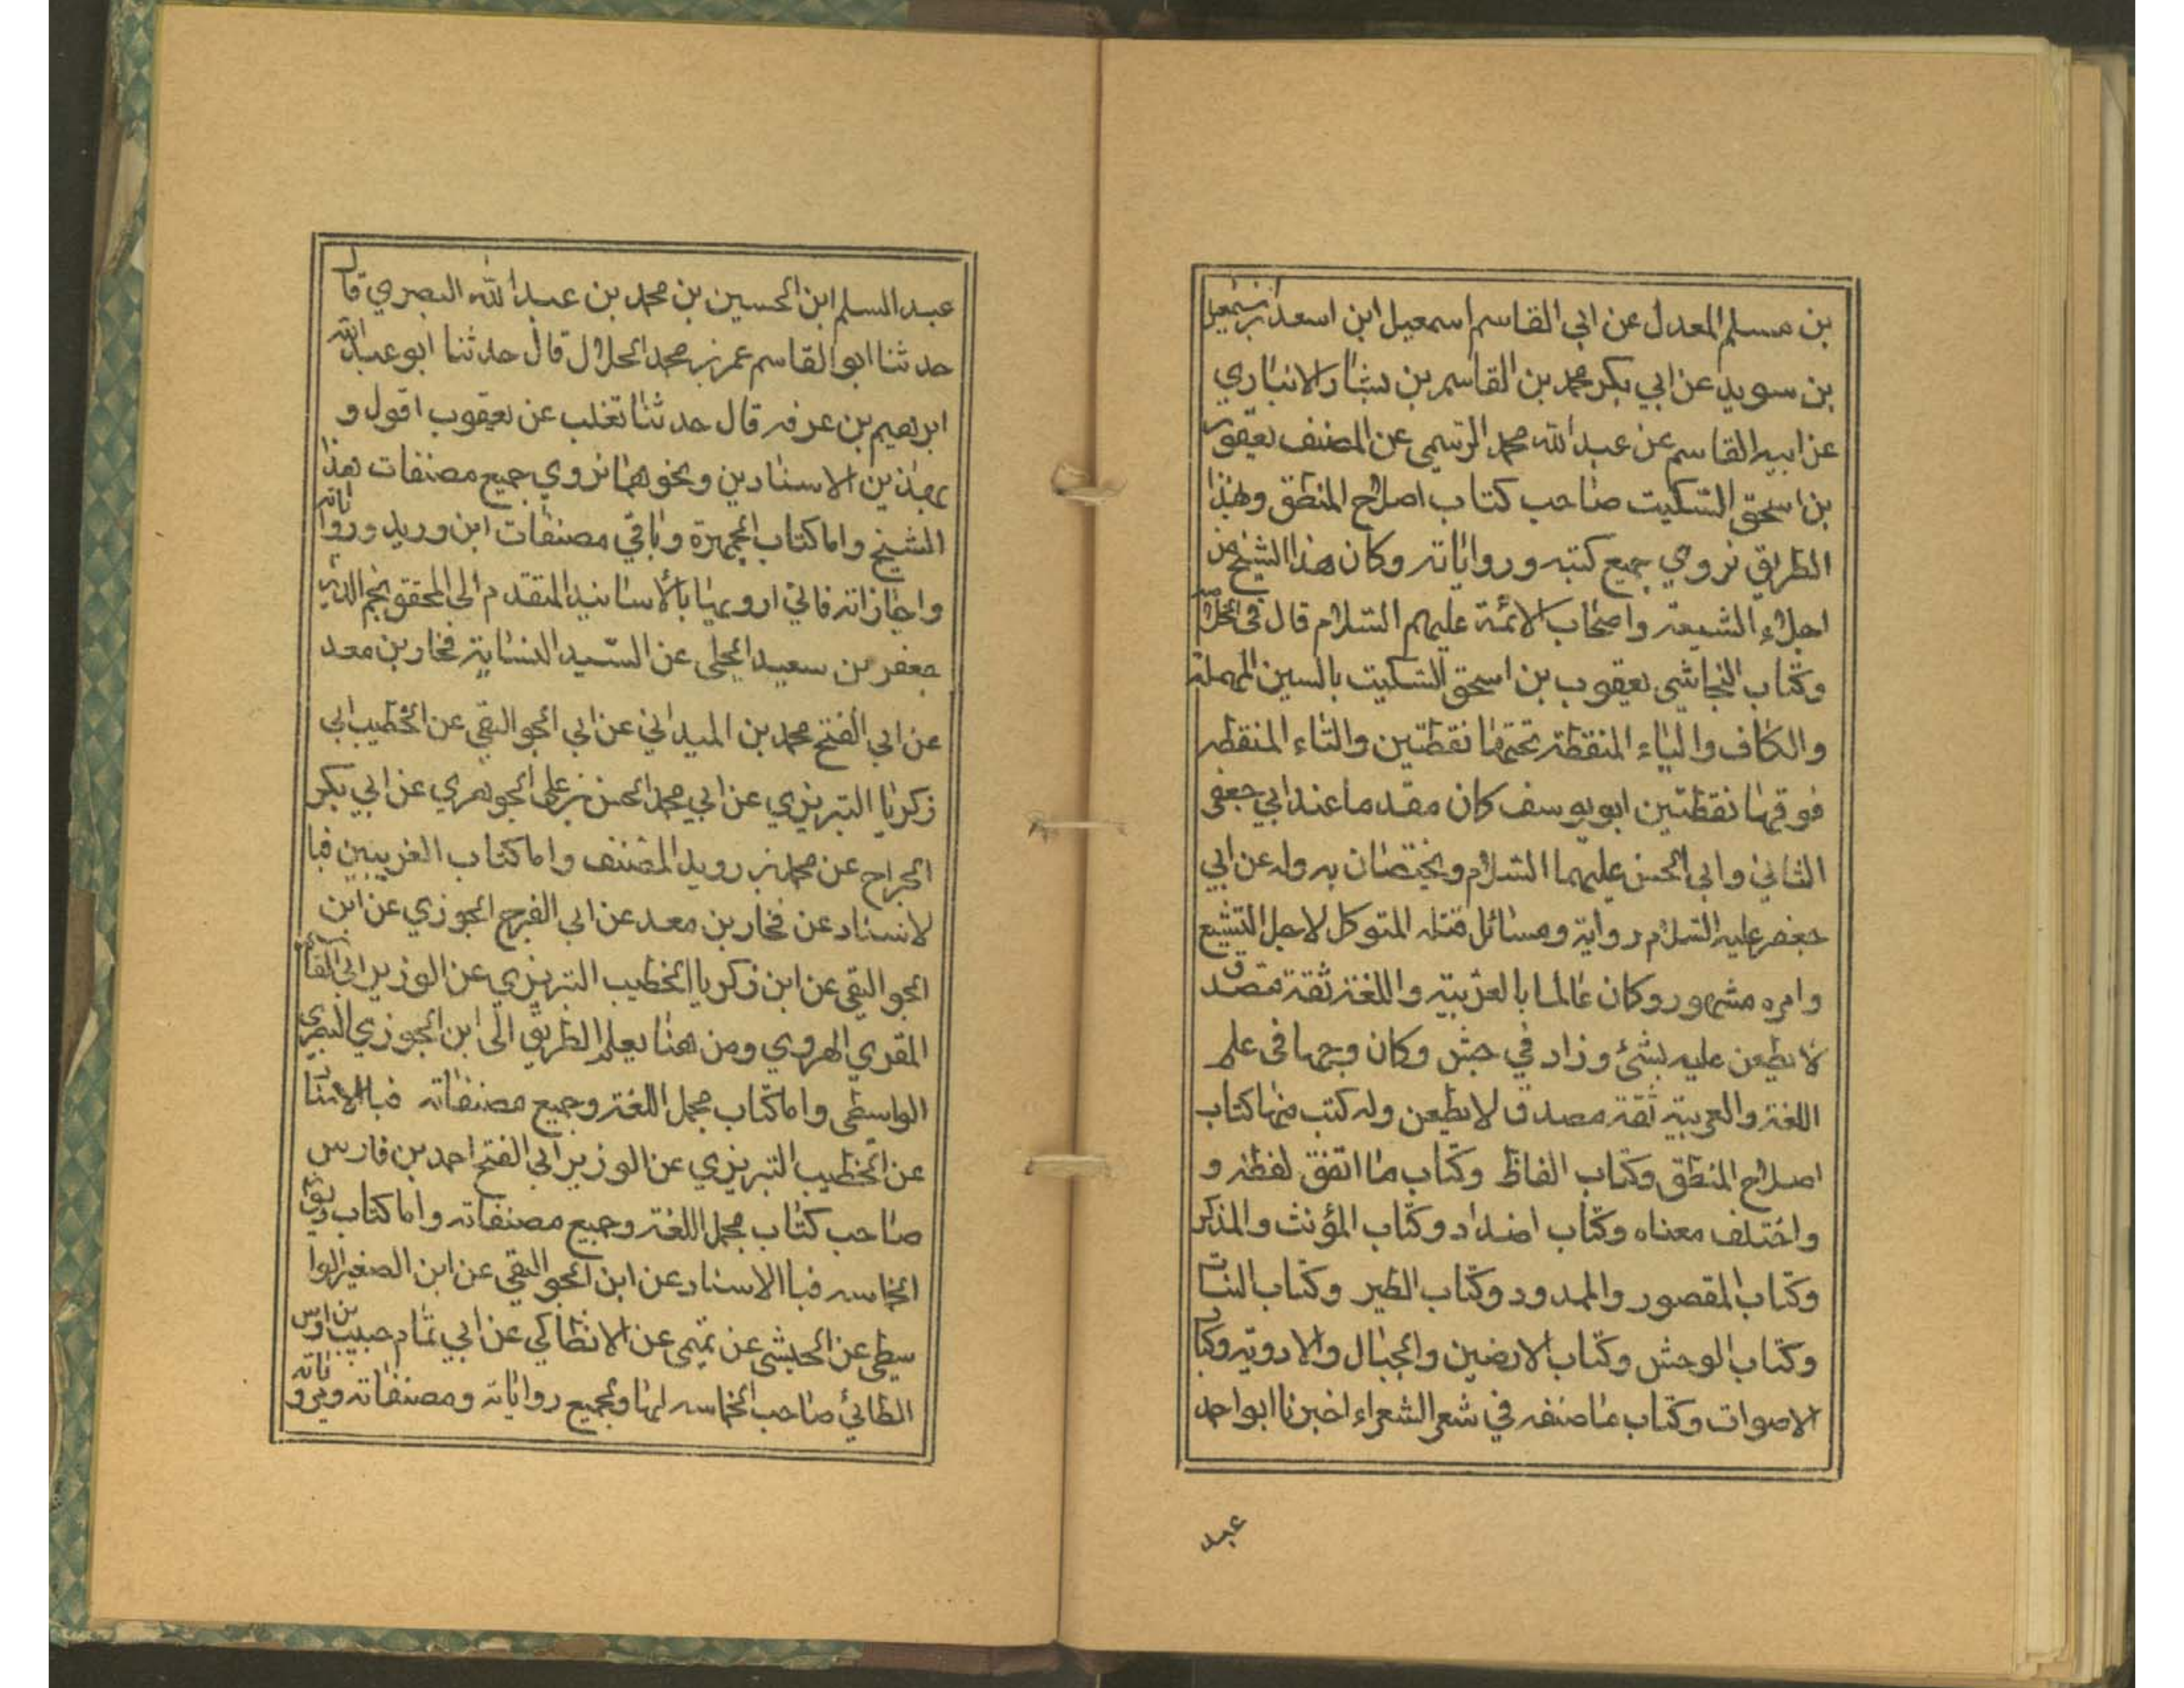 بن مسلم المعدل عن ابي القاسم اسمعيل ابن اسعد بن سمعيل
بن سويد عن ابي بكر محمد بن القاسم بن بشار الانباري
عن ابيه القاسم عن عبد الله محمد الرستمى عن المصنف يعقوب
بن اسحق السكيت صاحب كتاب اصلاح المنطق وبهذا
الطريق نروي جميع كتبه ورواياته وكان هذا الشيخ من
اجلاء الشيعة واصحاب الائمة عليهم السلام قال فى الخلاصة
وكتاب النجاشي يعقوب بن اسحق السكيت بالسين المهملة
والكاف والياء المنقطة تحتها نقطتين والتاء المنقطه
فوقها نقطتين ابو يوسف كان مقدما عند ابي جعفر
الثاني وابى الحسن عليهما السلام ويختصان به وله عن ابي
جعفر عليه السلام رواية ومسائل قتله المتوكل لاجل التشيع
وامره مشهور وكان عالما بالعربية واللغة ثقة مصدق
لا يطعن عليه بشئ وزاد في جش وكان وجها فى علم
اللغة والعربية ثقة مصدق لا يطعن وله كتب منها كتاب
اصلاح المنطق وكتاب الفاظ وكتاب ما اتفق لفظه و
واختلف معناه وكتاب اضداد وكتاب المؤنث والمذكر
وكتاب المقصور والممدود وكتاب الطير وكتاب النبات
وكتاب الوحش وكتاب الارضين والجبال والادوية وكتاب
الاصوات وكتاب ما صنفه في شعر الشعراء اخبرنا ابو احمد
عبد
عبد السلم ابن الحسين بن محمد بن عبد الله البصري قال
حدثنا ابو القاسم عمر بن محمد الحلال قال حدثنا ابو عبد الله
ابرهيم بن عرفه قال حدثنا تغلب عن يعقوب اقول و
بهذين الاسنادين ونحوهما نروي جميع مصنفات هذا
الشيخ واما كتاب الجمهرة وباقي مصنفات ابن وريد ورواياته
واجازاته فاني ارويها بالأسانيد المتقدم الى المحقق نجم الدين
جعفر بن سعيد الحلى عن السيد النسابة فخار بن معد
عن ابي الفتح محمد بن الميداني عن ابي الجواليقي عن الخطيب ابي
زكريا التبريزي عن ابي محمد الحسن بن على الجوهري عن ابي بكر
الجراح عن محمد بن رويد المصنف واما كتاب الغريبين فبا
لاسناد عن فخار بن معد عن ابي الفرج الجوزي عن ابن
الجواليقي عن ابن زكريا الخطيب التبريزي عن الوزير ابي القاسم
المقري الهروي ومن هنا يعلم الطريق الى ابن الجوزي البصري
الواسطى واما كتاب مجمل اللغة وجميع مصنفاته فبالاسناد
عن الخطيب التبريزي عن الوزير ابي الفتح احمد بن فارس
صاحب كتاب مجمل اللغة وجميع مصنفاته واما كتاب ديوان
الخاسه فباالاسناد عن ابن الجواليقي عن ابن الصغير الوا
سطى عن الحبشي عن تميمى عن الانطاكي عن ابي تمام حبيب بن اوس
الطائي صاحب الخماسه لها وبجميع رواياته ومصنفاته